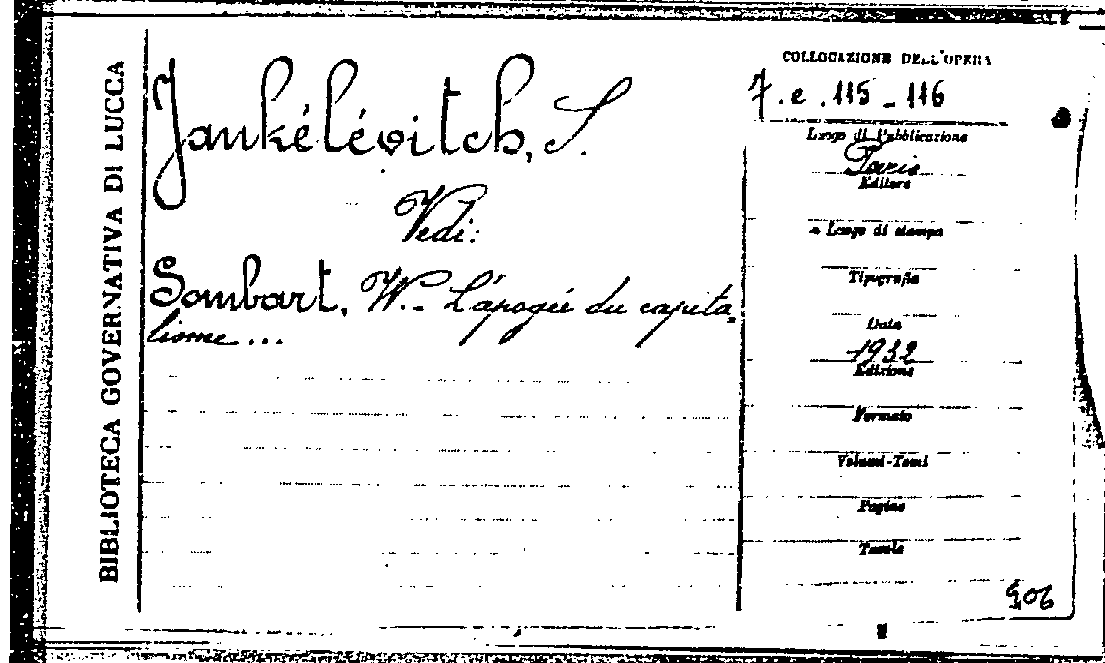 BIBLIOTECA GOVERNATIVA DI LUCCA
Jankélévitch, S.
Vedi:
Sombart, W.- L'apogée du capita=
lisme...
COLLOCAZIONE DELL'OPERA
7.e.115-116
Luogo di Pubblicazione
Paris
Editore
Luogo di stampa
Tipografia
Data
1932
Edizione
Formato
Volumi-Tomi
Pagine
Tavole